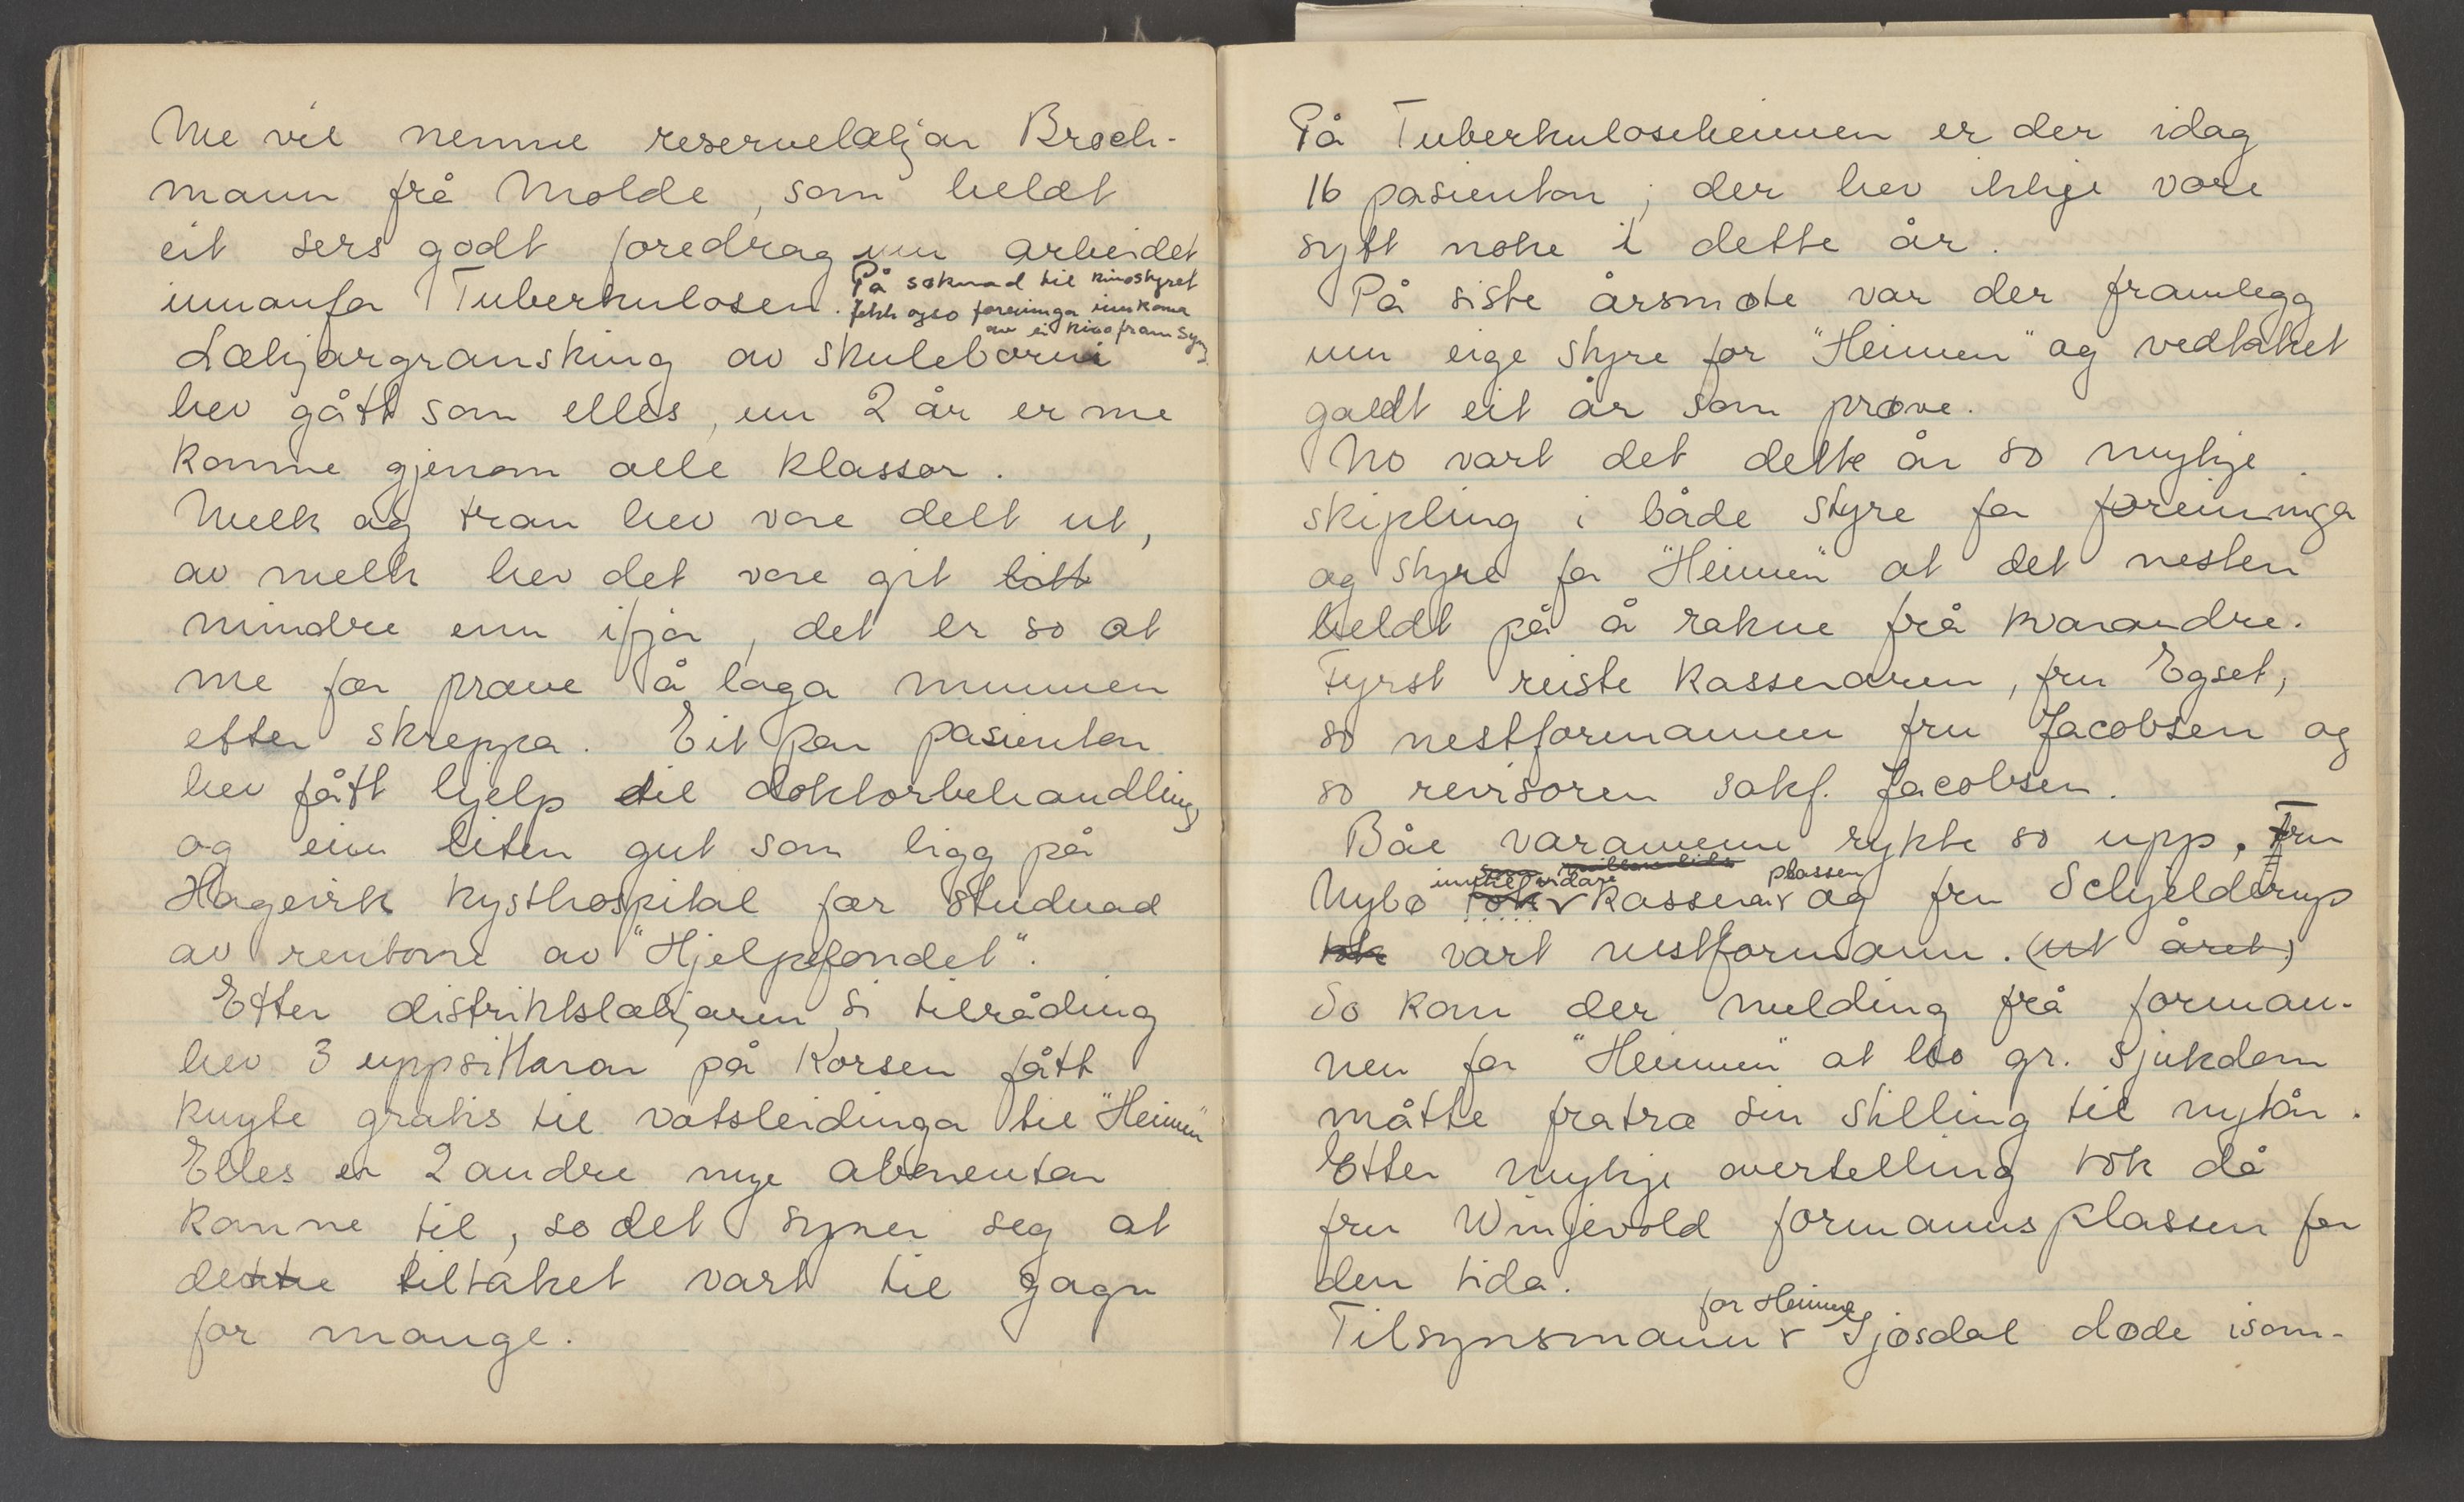 Me vil nemne reservelækjar Broch-
mann frå Molde, som heldt
eit sers godt foredrag um arbeidet
innanfor Tuberkulosen. På søknad til kinostyret
fekk ogso foreininga innkoma
av ei kinoframsyn.
Lækjargransking av skuleborni
hev gått som elles, um 2 år er me
komne gjenom alle klassor.
Melk og tran hev vore delt ut,
av melk hev det vore git litt
mindre enn ifjor, det er so at
me fær prøve å laga munnen
etter skreppa. Eit par pasientar
hev fått hjelp til doktorbehandling
og ein liten gut som ligg på
Hagevik kysthospital fær studnad
av rentone av "Hjelpefondet".
Etter distriktslækjaren si tilråding
hev 3 uppsittarar på Korsen fått
knyte gratis til vatsleidinga til "Heimen"
Elles er 2 andre nye abonentar
komne til, so det syner seg at
dette tiltaket vart til gagn
for mange.
På Tuberkuloseheimen er der idag
16 pasientar; der hev ikkje vore
sytt noke i dette år.
På siste årsmøte var der framlegg
um eige styre for "Heimen" og vedtaket
galdt eit år som prøve.
No vart det dette år so mykje
skipling i både styre for foreininga
og styre for "Heimen" at det nesten
heldt på å rakne frå kvarandre.
Fyrst reiste kasseraren, fru Egset,
so nestformannen fru Jacobsen og
so revisoren sakf. Jacobsen.
Båe varamenn rykte so upp. Fru
som millombils
inntil vidare plassen
Nybø tok kasserar og fru Schjelderup
tok vart nestformann. (ut året)
So kom der melding frå forman-
nen for "Heimen" at ho gr. sjukdom
måtte fratræ sin stilling til nytår.
Etter mykje overtelling tok då
fru Wingevold formannsplassen for
den tida.
for Heimen
Tilsynsmann Gjøsdal døde isom-